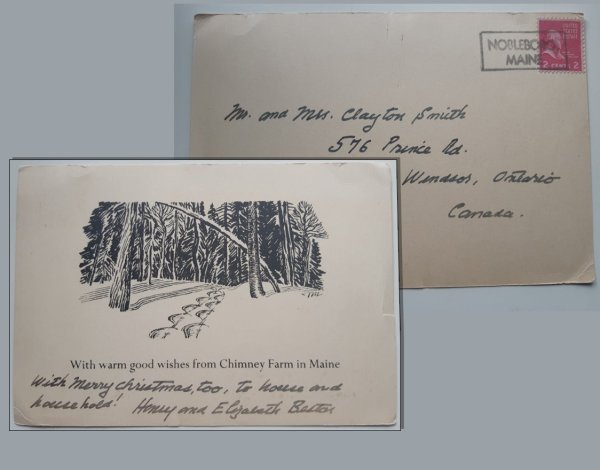 NOBLEBORO,
MAINE
UNITED
STATES
2 CENTS 2
Mr. and Mrs. Clayton Smith
576 Prince Rd.
Windsor, Ontario
Canada.
With warm good wishes from Chimney Farm in Maine
With Merry Christmas, too, to house and
household! Henry and Elizabeth Beston